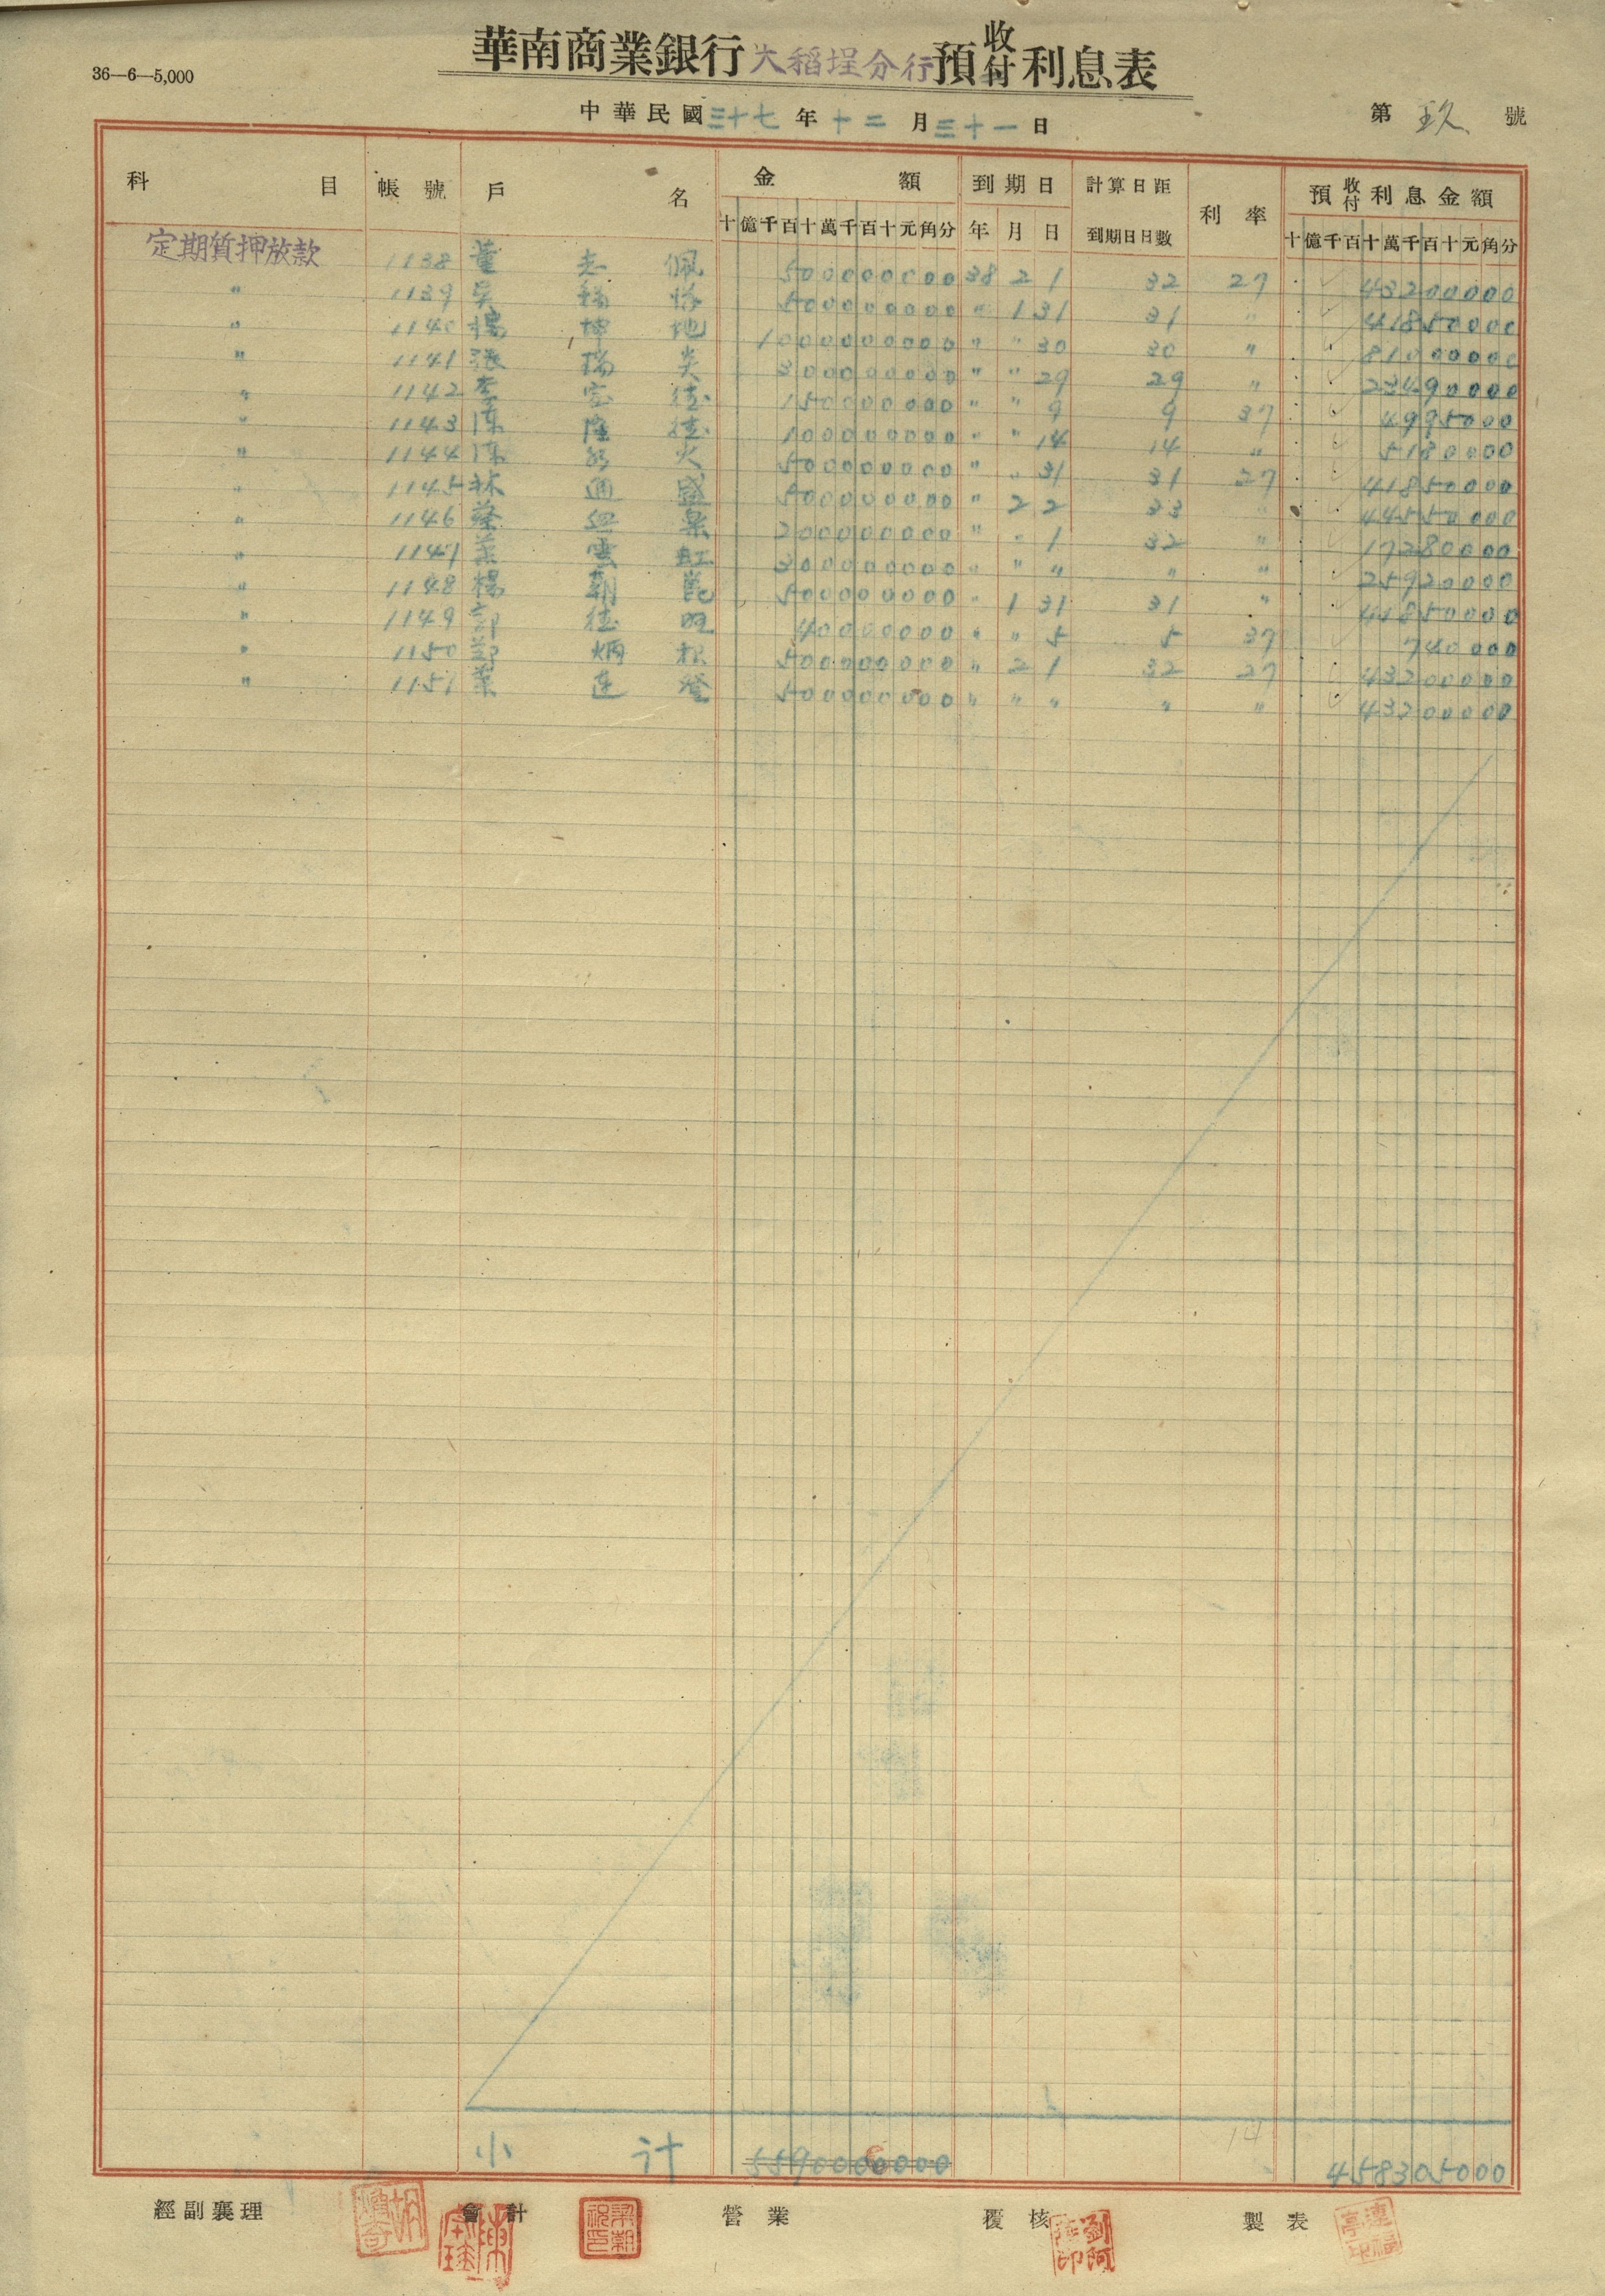 華南商業銀行大稻埕分行預收付利息表
36—6—5,000
中華民國三十七年十二月三十一日
第玖號
科目 帳號 戶名 金額 到期日 計算日距到期日日數 利率 預收付利息金額
十億千百十萬千百十元角分 年月日 十億千百十萬千百十元角分
定期質押放款 1138 董志佩 5000000000 38 2 1 32 27 43200000
〃 1139 吳 5000000000 〃 1 31 31 〃 41850000
〃 1140 楊坤地 10000000000 〃 〃 30 30 〃 81000000
〃 1141 張瑞炎 3000000000 〃 〃 29 29 〃 23490000
〃 1142 李 德 1500000000 〃 〃 9 9 37 4995000
〃 1143 陳隆德 1000000000 〃 〃 14 14 〃 5180000
〃 1144 陳 火 5000000000 〃 〃 31 31 27 41850000
〃 1145 林通盛 5000000000 〃 2 2 33 〃 44550000
〃 1146 蔡 2000000000 〃 〃 1 32 〃 17280000
〃 1147 葉雲 3000000000 〃 〃 〃 〃 〃 25920000
〃 1148 楊朝 5000000000 〃 1 31 31 〃 41850000
〃 1149 郭德旺 400000000 〃 〃 5 5 37 740000
〃 1150 鄭炳 5000000000 〃 2 1 32 27 43200000
〃 1151 葉連登 5000000000 〃 〃 〃 〃 〃 43200000
小計 55900000000 458305000
經副襄理 會計 營業 覆核 製表